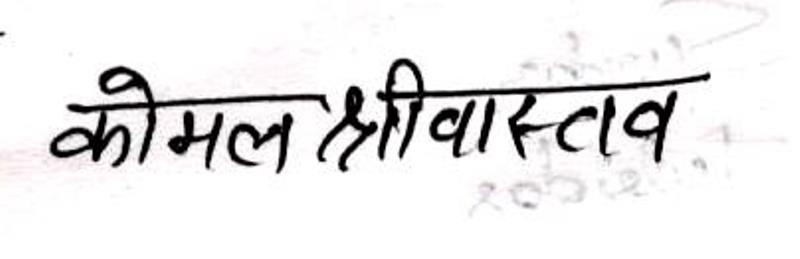 कोमल श्रीवास्तव